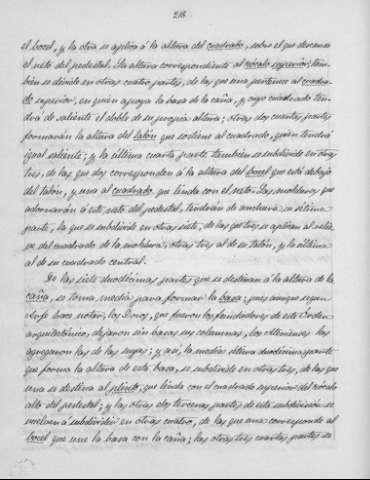 216
el bocel, y la otra se aplica á la altura del cuadrado, sobre el que descansa
el neto del pedestal. La altura correspondiente al zócalo superior, tam-
bién se divide en otras cuatro partes, de las que una pertenece al cuadra-
do superior, en quien apoya la basa de la caña, y cuyo cuadrado ten-
drá de saliente el doble de su propia altura; otras dos cuartas partes
formarán la altura del talón que sostiene al cuadrado, quien tendrá
igual saliente; y la última cuarta parte también se subdivide en otras
tres, de las que dos corresponden á la altura del bocel que está debajo
del talón, y una al cuadrado que linda con el neto. Las molduras que
adornarán á este neto del pedestal, tendrán de anchura su séptima
parte, la que se subdivide en otras siete, de las que tres se aplican al
del cuadrado de la moldura, otras tres al de su talón, y la última
al de su cuadrado central.
De las siete duodécimas partes que se destinan á la altura de la
caña, se toma media para formar la basa; pues aunque segun
hace notar, los Doros, que fueron los fundadores de este Orden
arquitectónico, dejaron sin basas sus columnas, los Atenienses las
agregaron las de las suyas; y así, la media última duodécima parte
que forma la altura de esta basa, se subdivide en otras tres, de las que
una se destina al plinto, que linda con el cuadrado superior del zócalo
alto del pedestal; y las otras dos terceras partes de esta subdivisión se
vuelven á subdividir en otras cuatro, de las que una corresponde al
bocel que une la basa con la caña; las otras tres cuartas partes se